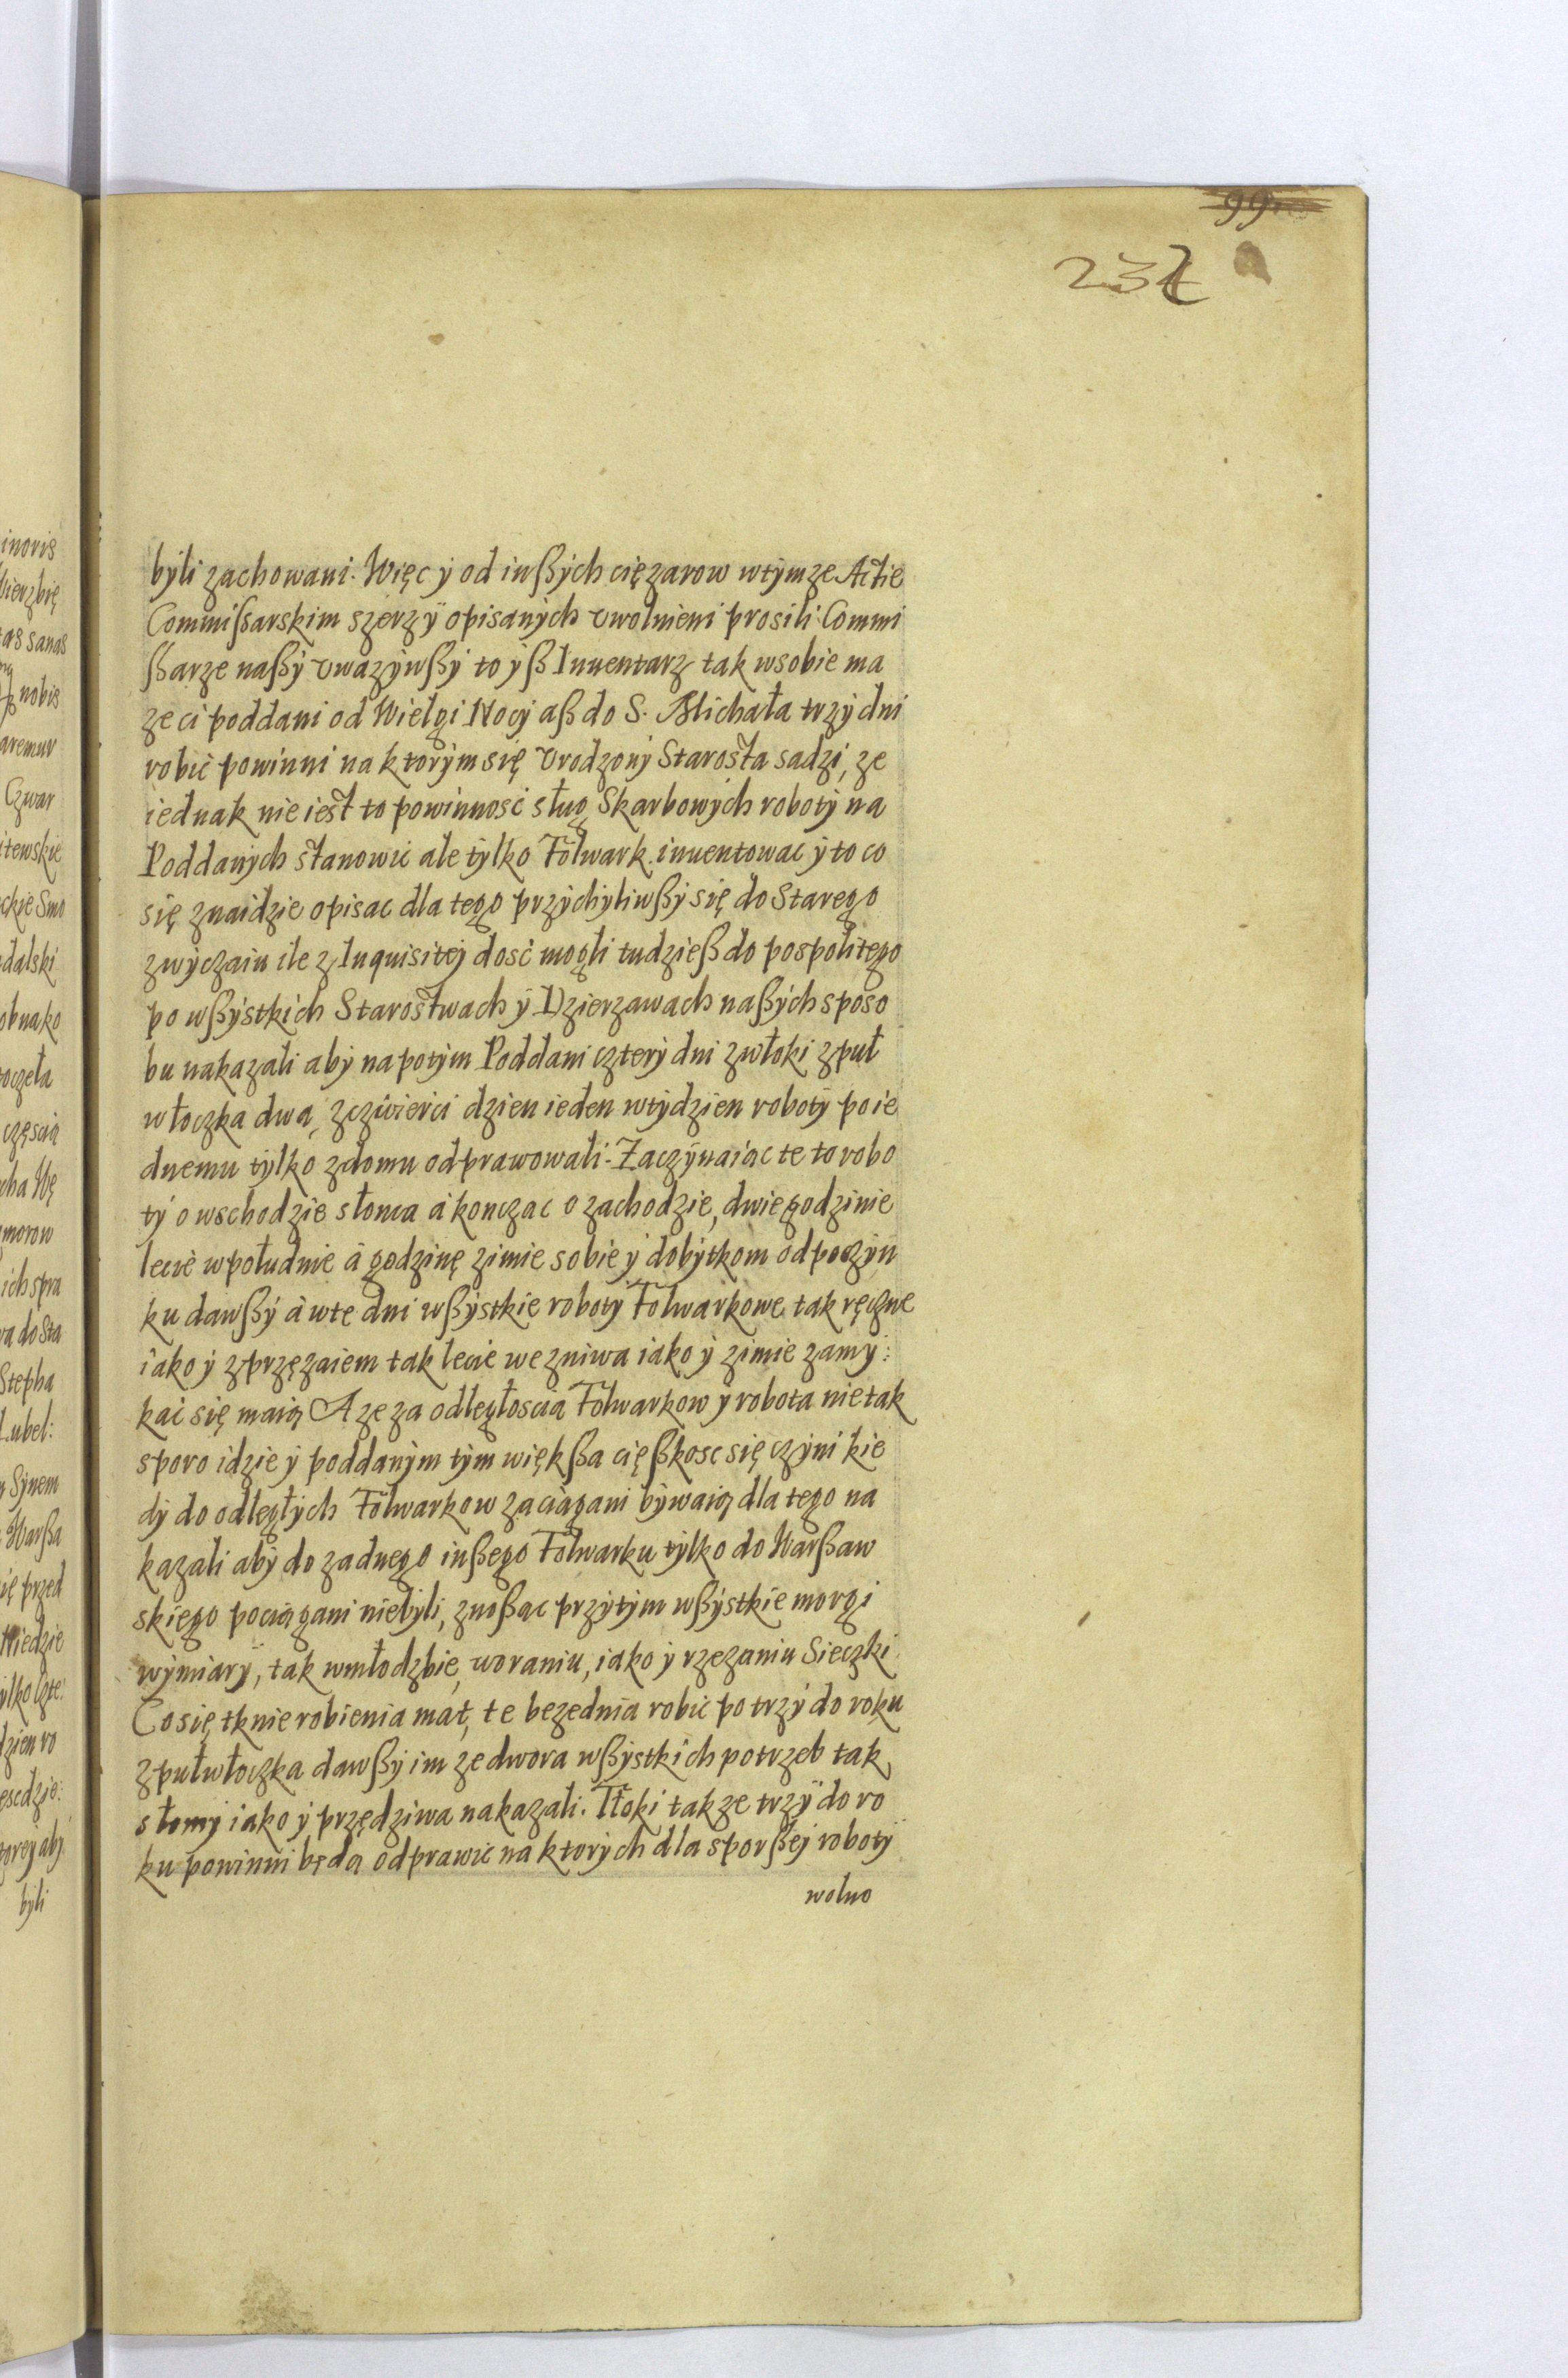 99
234
byli zachowani. Więc ÿ od inßÿch ciężarow wtÿmze Actie
Commißarskim szerzÿ opisanÿch vwolnieni prosili Commi
ßarze naßÿ vwazÿwßÿ to ÿß Inuentarz tak wsobie ma
ze ci poddani od Wielgi Nocÿ aß do S. Michała trzÿ dni
robić powinni na ktorÿm się Vrodzonÿ Starosta sadzi, ze
iednak nie iest to powinność sług Skarbowÿch robotÿ na
Poddanÿch stanowić ale tÿlko Folwark inuentować ÿ to co
się znaidzie opisac dla tego przÿchÿliwßÿ się do Starego
zwÿczaiu ile z Inquisitÿ dość mogli tudzieß do pospolitego
po wßÿstkich Starostwach ÿ Dzierzawach naßÿch sposo
bu nakazali abÿ napotÿm Poddani czterÿ dni zwłoki zpuł
włoczka dwa, zczwierci dzien ieden wtÿdzien robotÿ po ie
dnemu tÿlko zdomu odprawowali. Zaczÿnaiąc te to robo
tÿ o wschodzie słonca á konczac o zachodzie, dwie godzinie
lecie wpołudnie á godzinę zimie sobie ÿ dobÿtkom odpoczÿn
ku dawßÿ á wte dni wßÿstkie robotÿ Folwarkowe tak ręczne
iako ÿ zprzęzaiem tak lecie we zniwa iako ÿ zimie zamÿ:
kać się maią A ze za odległoscia Folwarkow ÿ robota nie tak
sporo idzie ÿ poddanÿm tÿm większa cięßkosc się czÿni kie
dÿ do odległÿch Folwarkow zaciągani bÿwaią dla tego na
kazali abÿ do zadnego inßego Folwarku tÿlko do Warßaw
skiego pociągani niebÿli, znoßąc przÿtÿm wßÿstkie morgi
wÿmiarÿ, tak wmłodzbie, woraniu, iako ÿ rzezaniu Sieczki
Co się tknie robienia mat, te bezednia robic po trzÿ do roku
zpułwłoczka dawßÿ im ze dwora wßÿstkich potrzeb tak
słomÿ iako ÿ przędziwa nakazali. Tłoki takze trzÿ do ro
ku powinni będą odprawić na ktorÿch dla sporßeÿ robotÿ
wolno